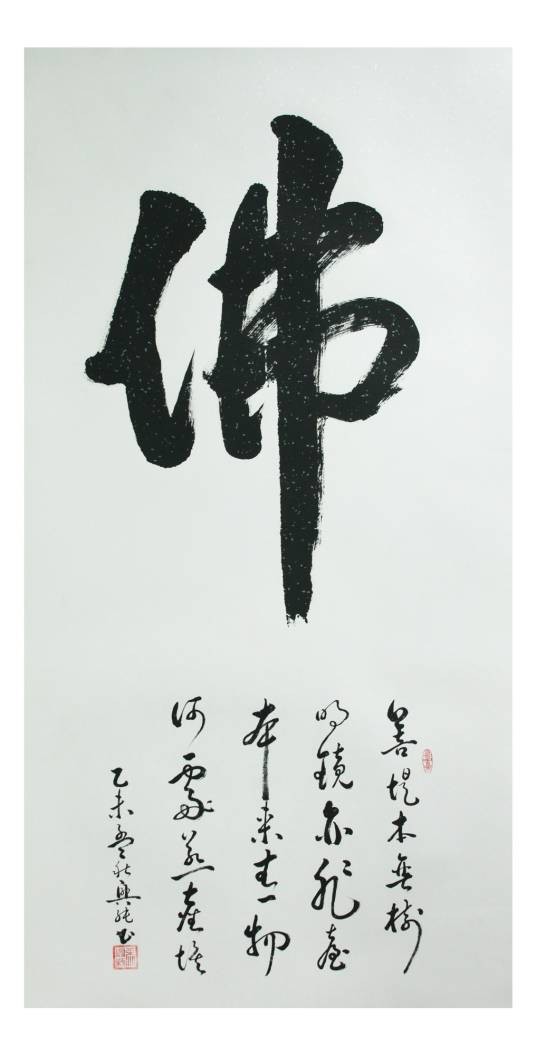 佛
菩提本無樹
明鏡亦非臺
本來無一物
何處惹塵埃
乙未秋興書